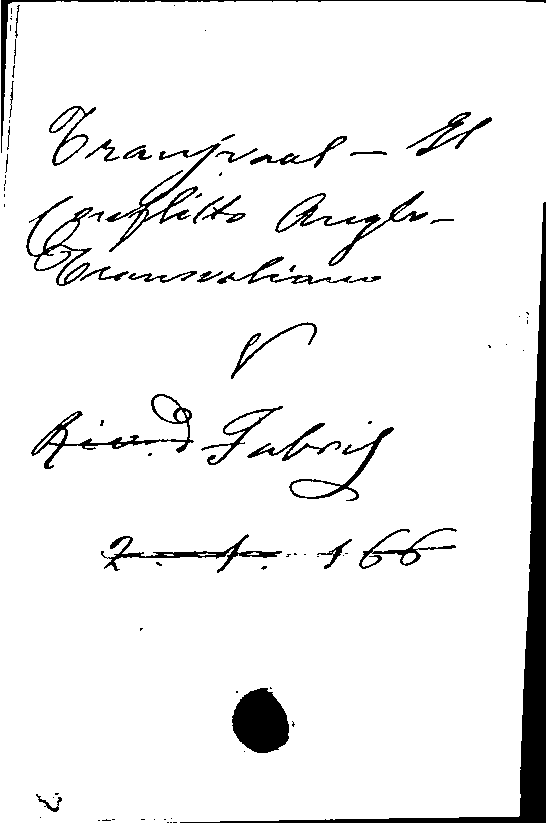 Transvaal - Il
Conflitto Anglo-
Transvaliano
V
Riv. d Fabris
2. 1. 166